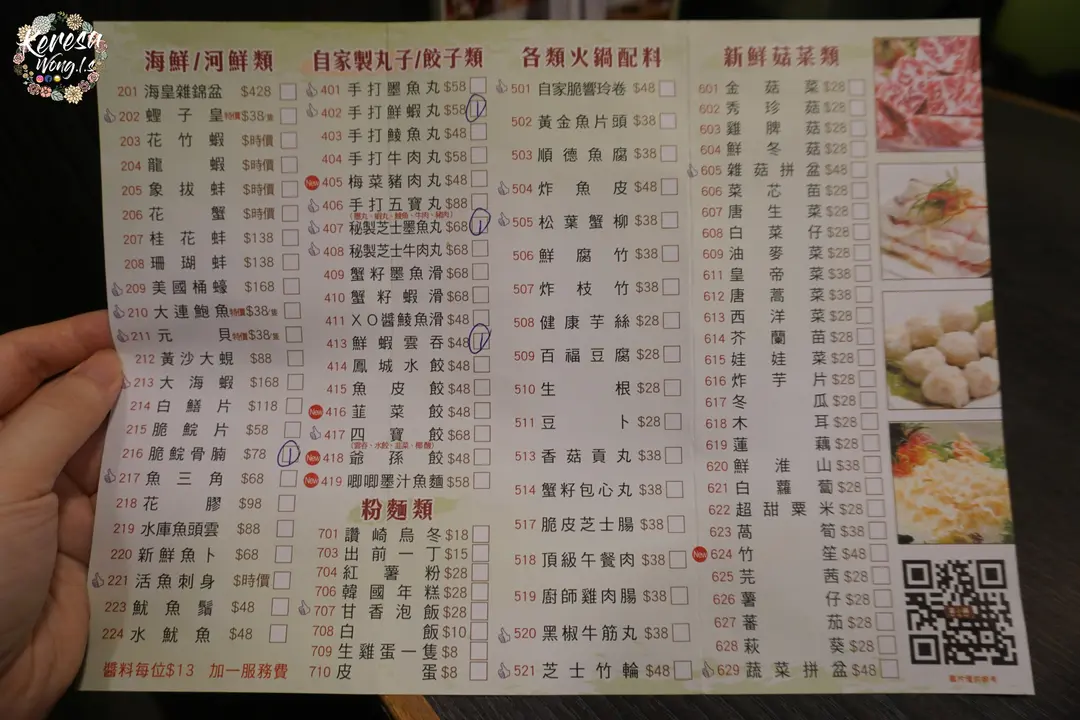 Keresa
Wong.l.s
海鮮/河鮮類
201 海皇雜錦盆 $428
202 蟶子皇 特價$38/隻
203 花竹蝦 $時價
204 龍蝦 $時價
205 象拔蚌 $時價
206 花蟹 $時價
207 桂花蚌 $138
208 珊瑚蚌 $138
209 美國桶蠔 $168
210 大連鮑魚 特價$38/隻
211 元貝 特價$38/隻
212 黃沙大蜆 $88
213 大海蝦 $168
214 白鱔片 $118
215 脆鯇片 $58
216 脆鯇骨腩 $78 1
217 魚三角 $68
218 花膠 $98
219 水庫魚頭雲 $88
220 新鮮魚卜 $68
221 活魚刺身 $時價
223 魷魚鬚 $48
224 水魷魚 $48
醬料每位$13 加一服務費
自家製丸子/餃子類
401 手打墨魚丸 $58
402 手打鮮蝦丸 $58 1
403 手打鯪魚丸 $48
404 手打牛肉丸 $58
New 405 梅菜豬肉丸 $48
406 手打五寶丸 $88
(墨丸、蝦丸、鯪魚、牛肉、豬肉)
407 秘製芝士墨魚丸 $68 1
408 秘製芝士牛肉丸 $68
409 蟹籽墨魚滑 $68
410 蟹籽蝦滑 $68
411 XO醬鯪魚滑 $48
413 鮮蝦雲吞 $48 1
414 鳳城水餃 $48
415 魚皮餃 $48
New 416 韮菜餃 $48
417 四寶餃 $68
New 418 爺孫餃 $48
New 419 唧唧墨汁魚麵 $58
粉麵類
701 讚崎烏冬 $18
703 出前一丁 $15
704 紅薯粉 $28
706 韓國年糕 $28
707 甘香泡飯 $28
708 白飯 $10
709 生雞蛋一隻 $8
710 皮蛋 $8
各類火鍋配料
501 自家脆響玲卷 $48
502 黃金魚片頭 $38
503 順德魚腐 $38
504 炸魚皮 $48
505 松葉蟹柳 $38
506 鮮腐竹 $38
507 炸枝竹 $38
508 健康芋絲 $28
509 百福豆腐 $28
510 生根 $28
511 豆卜 $28
513 香菇貢丸 $38
514 蟹籽包心丸 $38
517 脆皮芝士腸 $38
518 頂級午餐肉 $38
519 廚師雞肉腸 $38
520 黑椒牛筋丸 $38
521 芝士竹輪 $48
新鮮菇菜類
601 金菇菜 $28
602 秀珍菇 $28
603 雞脾菇 $28
604 鮮冬菇 $28
605 雜菇拼盆 $48
606 菜芯苗 $28
607 唐生菜 $28
608 白菜仔 $28
609 油麥菜 $28
611 皇帝菜 $38
612 唐蒿菜 $38
613 西洋菜 $28
614 芥蘭苗 $28
615 娃娃菜 $28
616 炸芋片 $28
617 冬瓜 $28
618 木耳 $28
619 蓮藕 $28
620 鮮淮山 $38
621 白蘿蔔 $28
622 超甜粟米 $28
623 萵筍 $38
New 624 竹笙 $48
625 芫茜 $28
626 薯仔 $28
627 蕃茄 $28
628 萩葵 $28
629 蔬菜拼盆 $48
圖片僅供參考